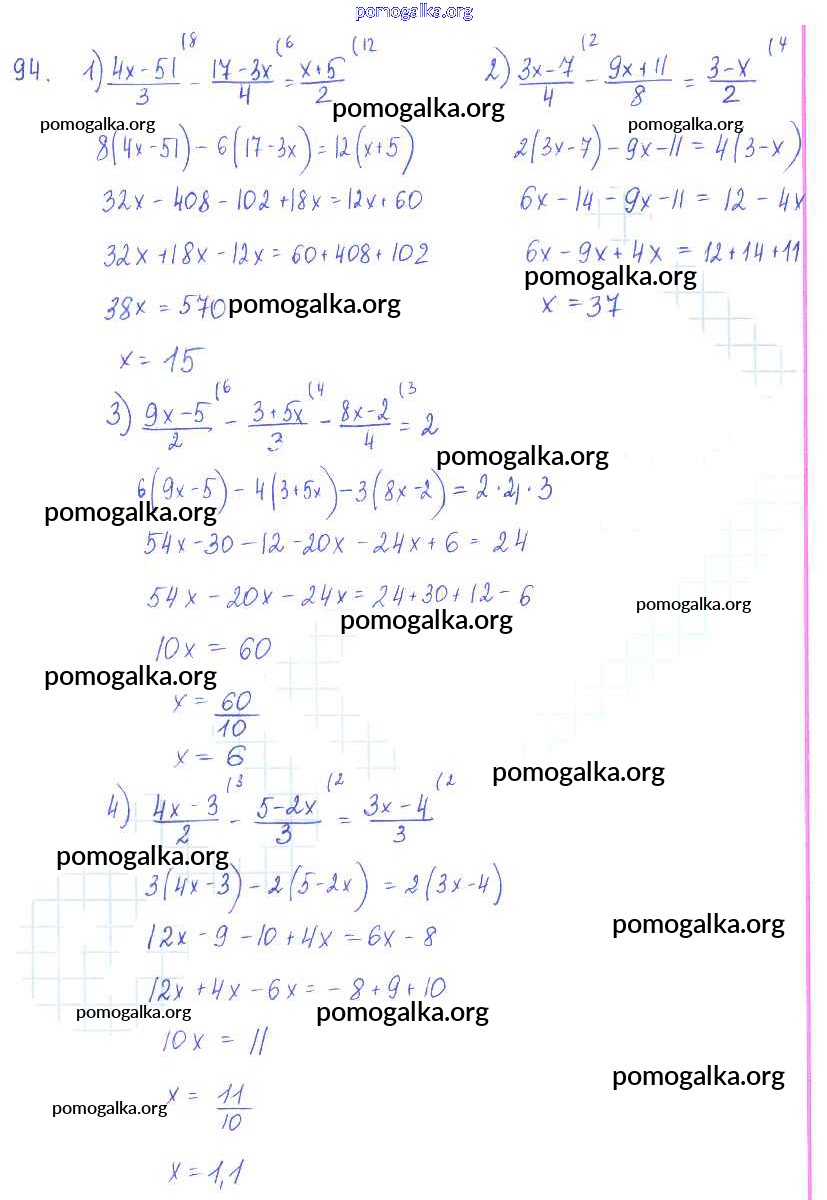 pomogalka.org
94. 1) (4x-51)/3 (8 - (17-3x)/4 (6 = (x+5)/2 (12
pomogalka.org
pomogalka.org
8(4x-51)-6(17-3x)=12(x+5)
32x-408-102+18x=12x+60
32x+18x-12x=60+408+102
38x=570
pomogalka.org
x=15
2) (3x-7)/4 (2 - (9x+11)/8 = (3-x)/2 (4
pomogalka.org
2(3x-7)-9x-11=4(3-x)
6x-14-9x-11=12-4x
6x-9x+4x=12+14+11
pomogalka.org
x=37
3) (9x-5)/2 (6 - (3+5x)/3 (4 - (8x-2)/4 (3 = 2
pomogalka.org
6(9x-5)-4(3+5x)-3(8x-2)=2·4·3
pomogalka.org
54x-30-12-20x-24x+6=24
54x-20x-24x=24+30+12-6
pomogalka.org
pomogalka.org
10x=60
pomogalka.org
x=60/10
x=6
pomogalka.org
4) (4x-3)/2 (3 - (5-2x)/3 (2 = (3x-4)/3 (2
pomogalka.org
3(4x-3)-2(5-2x)=2(3x-4)
pomogalka.org
12x-9-10+4x=6x-8
12x+4x-6x=-8+9+10
pomogalka.org
pomogalka.org
10x=11
pomogalka.org
x=11/10
pomogalka.org
x=1,1